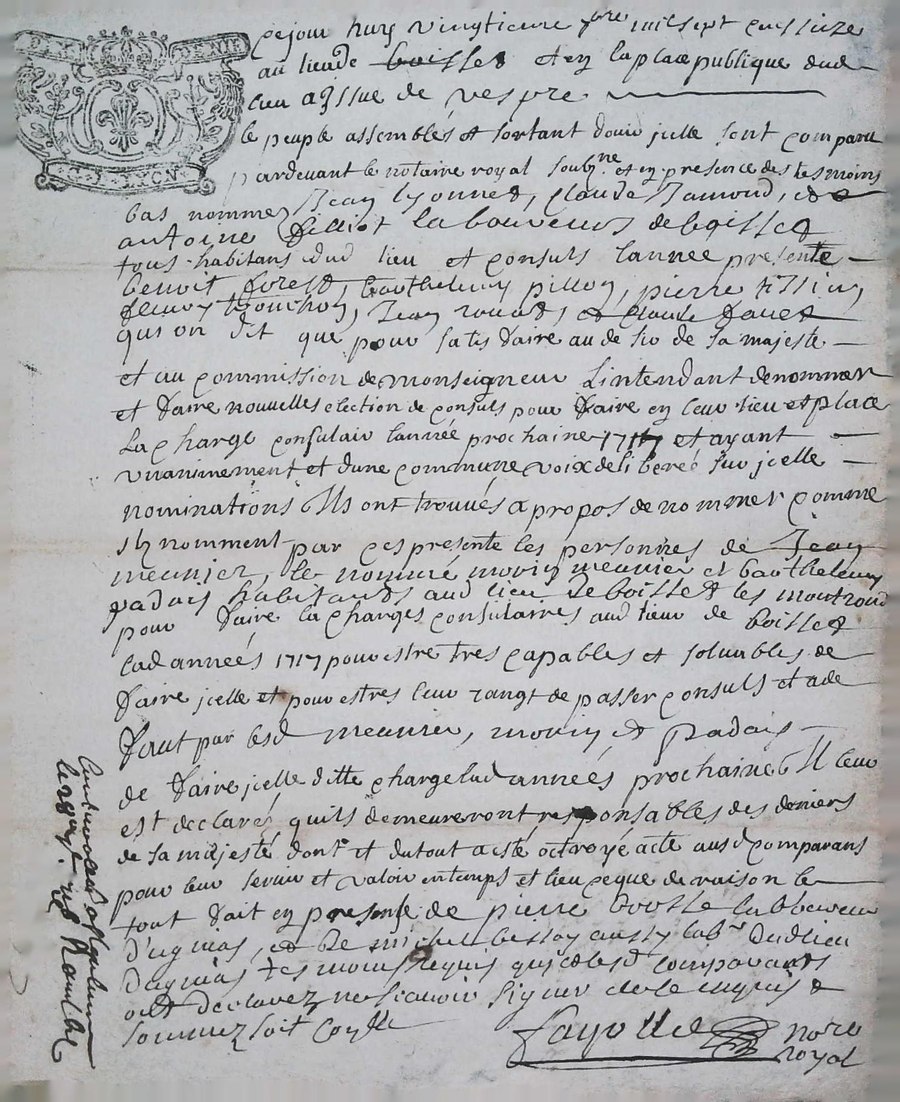 cejour huy vingtieme 7bre mil sept cens size
au lieu de boisset et en la place publique dud
lieu a issue de vespre
le peuple assemblés et sortant douir jcelle sont comparu
pardevant le notaire royal soubne. et en presence des tesmoins
bas nommez Jean lyonnet, Claude Ramond, et
antoine filliot laboureurs de boisset
tous habitans dud lieu et consuls lannee presente
benoit forest, barthelemy pillon, pierre
Jean et Claude
qui on dit que pour satisfaire au de sir de sa majeste
et au commission de monseigneur Lintendant de nommer
et faire nouvelles election de consuls pour faire en leur lieu et place
la charge consulair lannée prochaine 1717 et ayant
unanimement et dune commune voix deliberés sur jcelle
nominations Ils ont trouvés a propos de nommer comme
Ils nomment par ces presente les personnes de Jean
meunier, le nommé morin meunier et barthelemy
padais habitants aud lieu de boisset les montrond
pour faire la charges consulaires aud lieur de boisset
lad années 1717 pour estre tres capables et soluables de
faire jcelle et pour estres leur rangt de passer consuls et a de
faut par lesd meunier, morin et Padais
de faire jcelle ditte charge lad années prochaine Il leur
est declarés quils demeureront responsables des deniers
de sa majesté dont et du tout a esté octroyé acte ausd comparans
pour leur servir et valoir en temps et lieu ceque de raison le
tout fait en presense de pierre labboureur
et de michel aussy labr. dud lieu
tesmoins requis qui et lesd comparants
ont declarez ne scavoir signer de ce enquis et
sommez soit
nore
royal